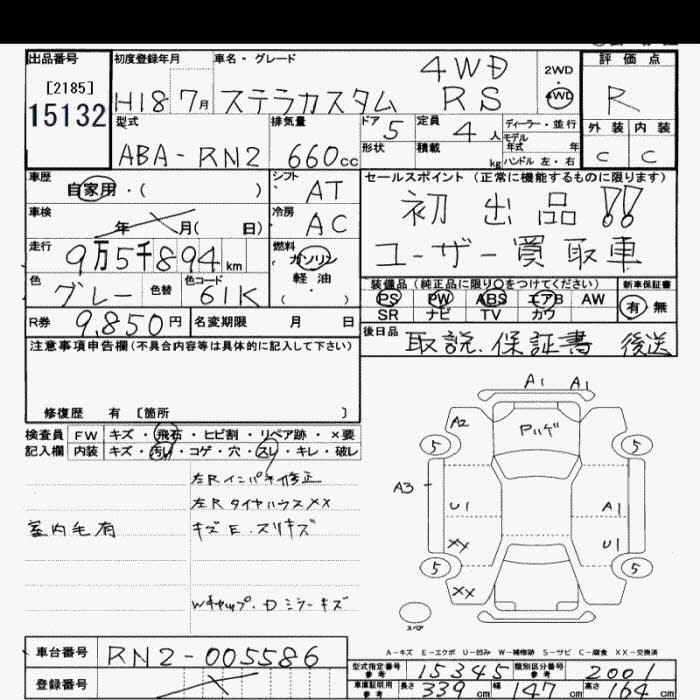 出品番号
[2185]
15132
初度登録年月
H18 7月
車名・グレード
4WD
ステラカスタム RS
2WD
4WD
評価点
R
外装 内装
C C
型式
ABA-RN2
排気量
660cc
ドア 5
形状
定員 4人
積載 kg
ディーラー・並行
モデル
年式 年
ハンドル 左・右
車歴
自家用・( )
シフト
AT
車検
年 月( 日)
冷房
AC
走行
9万5千894km
燃料
ガソリン
軽油
( )
色
グレー
色替
色コード
61K
R券 9,850円
名変期限 月 日
セールスポイント (正常に機能するものに限ります)
初出品!!
ユーザー買取車
装備品 (純正品に限り○をつけてください)
PS PW ABS エアB AW
SR ナビ TV カワ
新車保証書
有 無
後日品 取説.保証書 後送
注意事項申告欄(不具合内容等は具体的に記入して下さい)
修復歴 有 [箇所 ]
検査員 FW キズ・飛石・ヒビ割・リペア跡・×要
記入欄 内装 キズ・汚レ・コゲ・穴・スレ・キレ・破レ
左Rインパネ修正
左RタイヤハウスXX
室内毛有
キズE.スリキズ
Wキャップ.Dミラーキズ
A1 A1
A2
Pハゲ
5 5
A3
U1 A1
XX U1
5 5
XX
スペア
A-キズ E-エクボ U-凹み W-補修跡 S-サビ C-腐食 XX-交換済
車台番号 RN2-005586
登録番号
型式指定番号
参考
15345
類別区分番号
参考
2001
車庫証明用
参考
長さ 339cm 幅 147cm 高さ 164cm